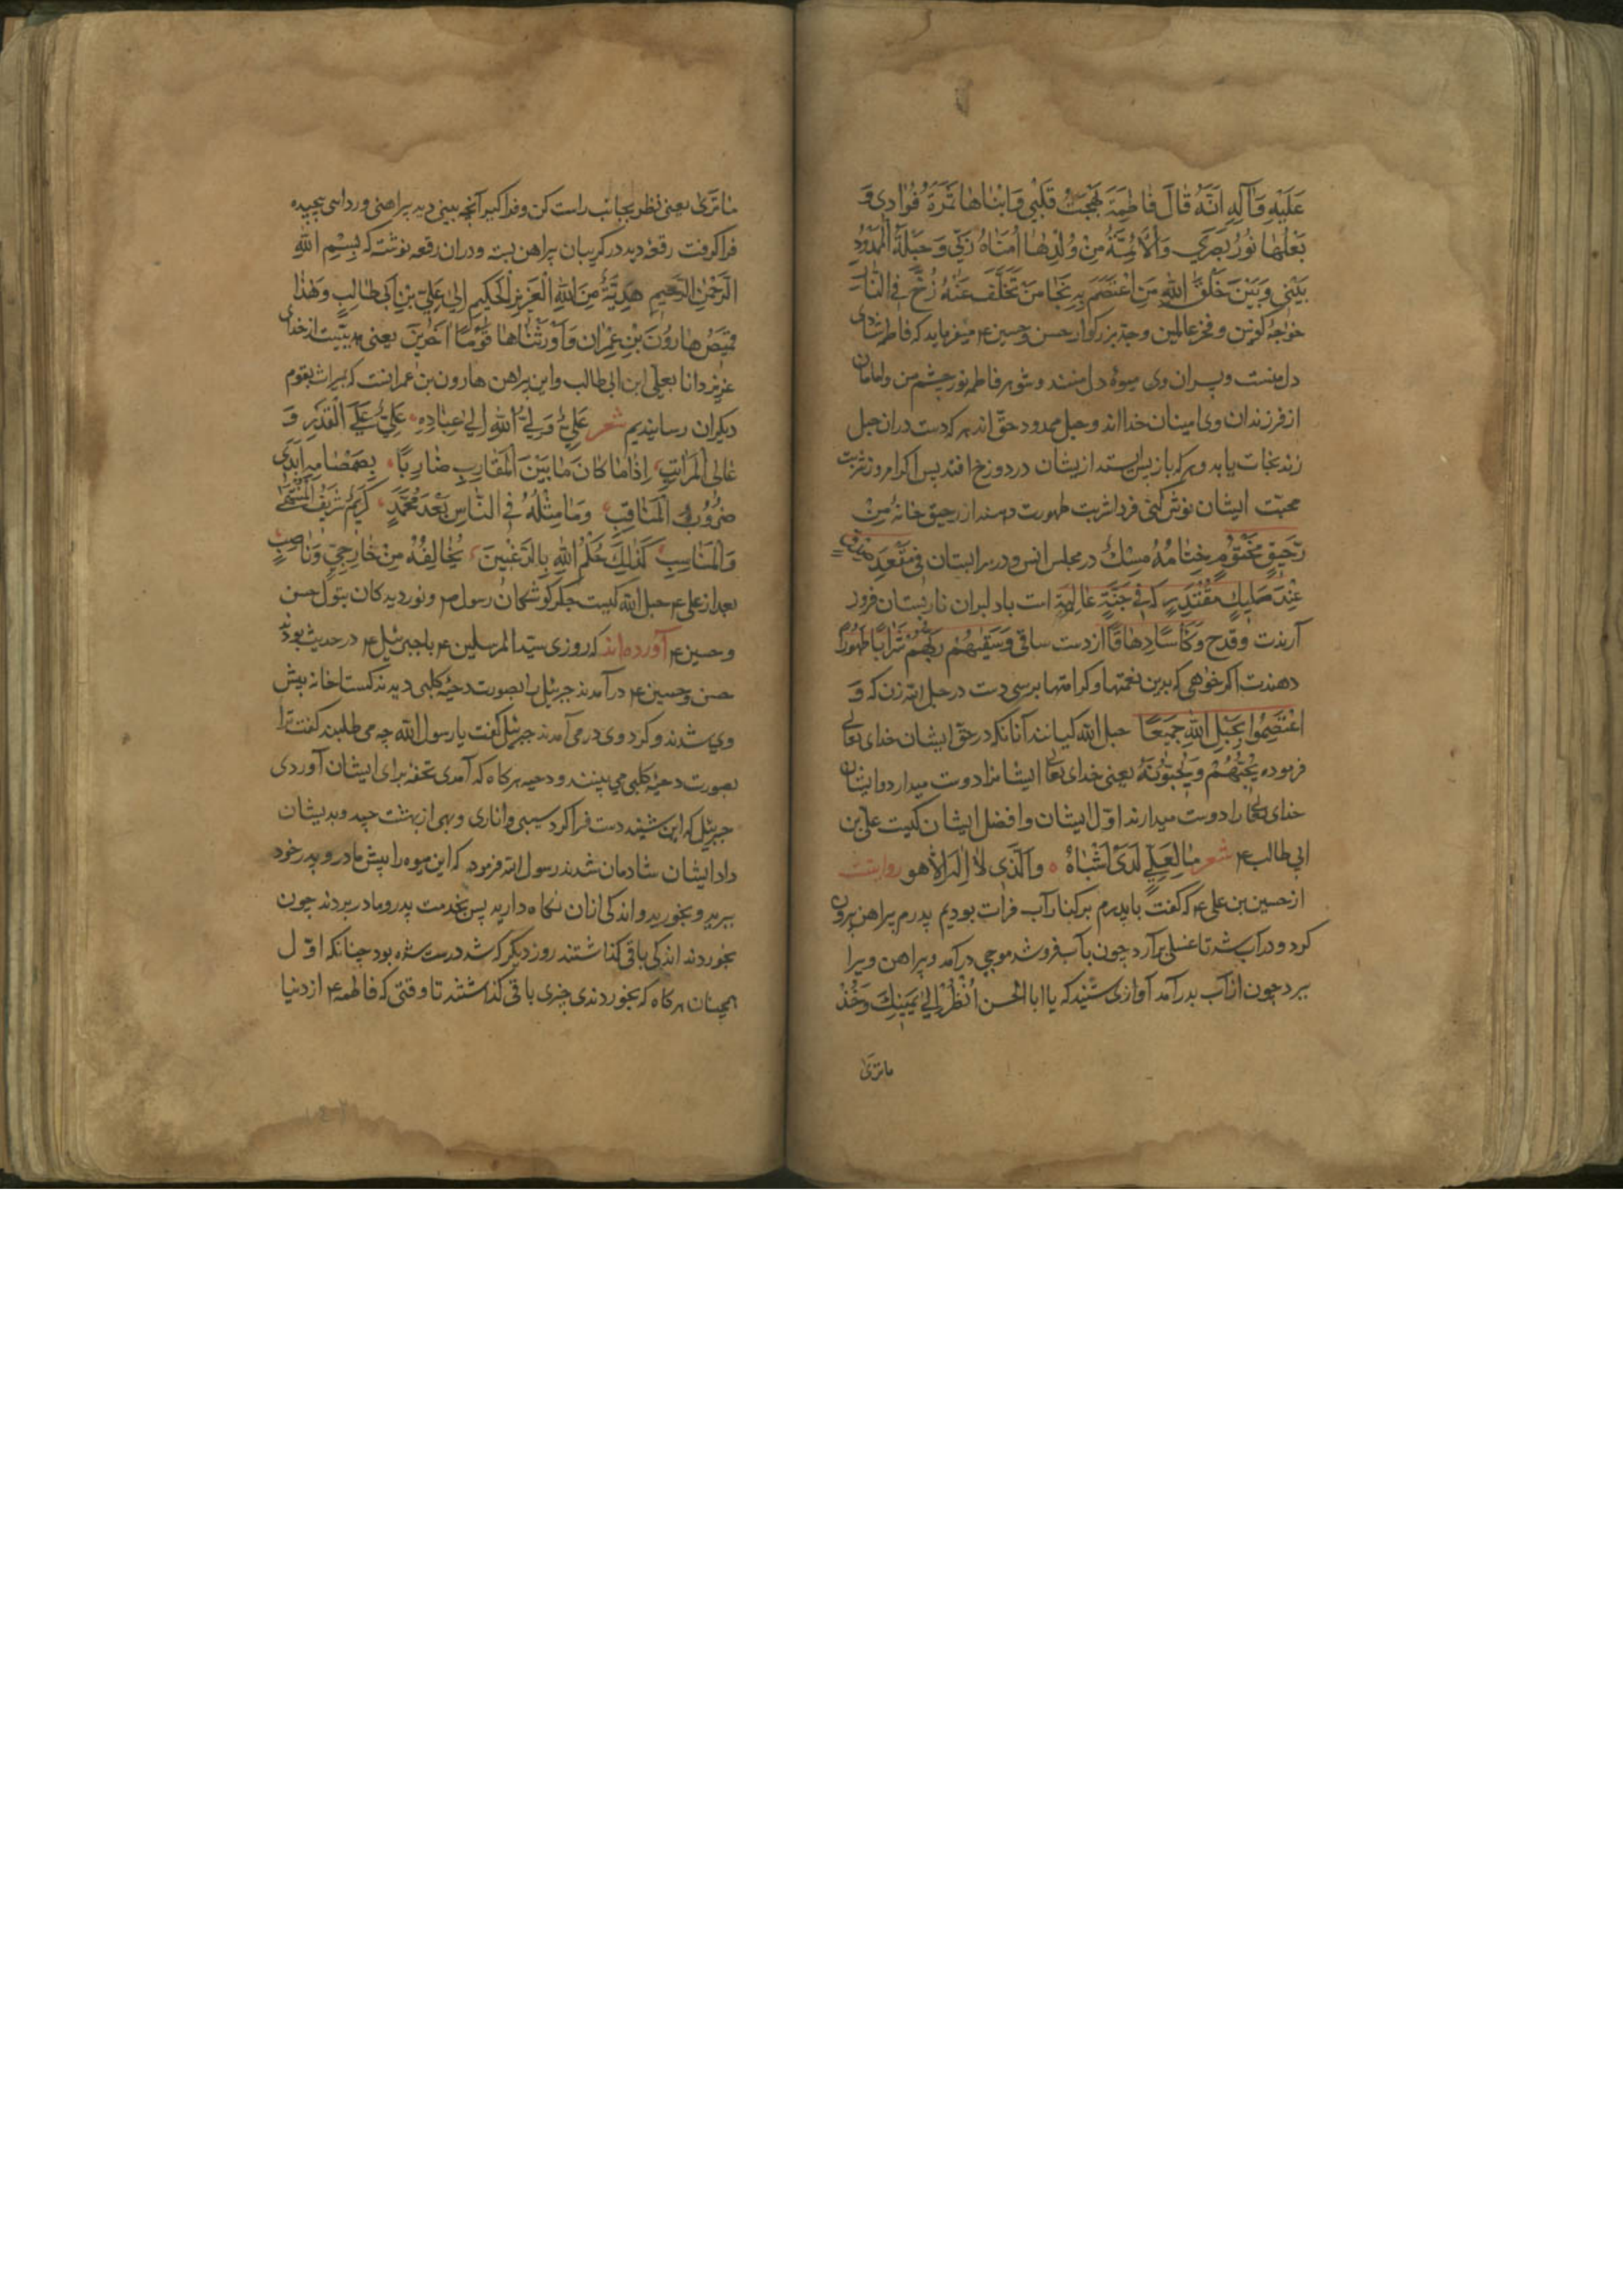 عَلَيْهِ وَآلِهِ اَنَّهُ قَالَ فَاطِمَةُ بَهْجَتُ قَلْبِي وَابْنَاهَا ثَمَرَةُ فُؤَادِي وَ
بَعْلُهَا نُورُ بَصَرِي وَالْاَئِمَّةُ مِنْ وُلْدِهَا اُمَنَاءُ رَبِّي وَحَبْلُهُ الْمَمْدُودُ
بَيْنِي وَبَيْنَ خَلْقِ اللهِ مَنِ اعْتَصَمَ بِهِ نَجَا مَنْ تَخَلَّفَ عَنْهُ زُخَّ فِي النَّارِ
خواجۀ کونین و فخر عالمین و جدّ بزرگوار حسن وحسین ع میفرماید که فاطمه شادی
دل منست و پسران وی میوۀ دل منند و شوهر فاطمه نور چشم من و امامان
از فرزندان وی امینان خدااند و حبل ممدود حقّ اند هر که دست دران حبل
زند نجات یابد و هر که باز پس ایستد ازیشان در دوزخ افتد پس اگر امروز شربت
محبّت ایشان نوش کنی فردا شربت طهورت دهند از رحیق خانۀ مِنْ
رَحِيقٍ مَخْتُومٍ خِتَامُهُ مِسْكٌ در مجلس انس و در سرابستان فِي مَقْعَدِ صِدْقٍ
عِنْدَ مَلِيكٍ مُقْتَدِرٍ که فِي جَنَّةٍ عَالِيَةٍ است با دلبران نارپستان فرود
آرندت و قدح وَكَأْسًا دِهَاقًا از دست ساقی وَسَقٰيهُمْ رَبُّهُمْ شَرَابًا طَهُورًا
دهندت اگر خواهی که بدین نعمتها و کرامتها برسی دست در حبل الله زن که وَ
اعْتَصِمُوا بِحَبْلِ اللهِ جَمِيعًا حبل الله کیانند آنانکه در حقّ ایشان خدای تعالی
فرموده یُحِبُّهُمْ وَيُحِبُّونَهُ یعنی خدای تعالی ایشانرا دوست میدارد و ایشان
خدای تعالی را دوست میدارند اوّل ایشان و افضل ایشان کیست علی بن
ابی طالب ع شعر مَا لِعَلِيٍّ لَدَيَّ اَشْبَاهُ ه وَالَّذِي لَا اِلٰهَ اِلَّا هُو روایتست
از حسین بن علی ع که گفت با پدرم بر کنار آب فرات بودیم پدرم پیراهن بیرون
کرد و در آب شد تا غسلی برآرد چون بآب فرو شد موجی درآمد و پیراهن ویرا
ببرد چون از آب بدر آمد آوازی شنید که یا ابا الحسن اُنْظُرْ اِلٰى يَمِينِكَ وَخُذْ
ما تری
مَا تَرٰى یعنی نظر بجانب راست کن و فراگیر آنچه بینی دید پیراهنی در ردایی پیچیده
فرا گرفت رقعۀ دید در گریبان پیراهن بسته و دران رقعه نوشته که بِسْمِ اللهِ
الرَّحْمٰنِ الرَّحِيمِ هَدِيَّةٌ مِنَ اللهِ الْعَزِيزِ الْحَكِيمِ اِلٰى عَلِيِّ بْنِ اَبِي طَالِبٍ وَهٰذَا
قَمِيصُ هَارُونَ بْنِ عِمْرَان وَاَوْرَثْنَاهَا قَوْمًا اٰخَرِينَ یعنی هدیّتست از خدای
عزیز دانا بعلی ابن ابی طالب و این پیراهن هارون بن عمرانست که میراث بقوم
دیگران رسانیدیم شعر عَلِيٌّ وَلِيُّ اللهِ اِلٰى عِبَادِهِ عَلِيٌّ عَلَى الْقَدْرِ وَ
عَالِي الْمَرَاتِبِ اِذَا مَا كَانَ مَا بَيْنَ الْمَقَارِبِ ضَارِبًا بِصَمْصَامِهِ اَبْدَى
ضُرُوبَ الْمَنَاقِبِ وَمَا مِثْلُهُ فِي النَّاسِ بَعْدَ مُحَمَّدٍ كَرِيمٌ شَرِيفُ الْمُنْتَهٰى
وَالْمَنَاسِبِ كَذٰلِكَ حُكْمُ اللهِ يُخَالِفُهُ مِنْ خَارِجِيٍّ وَنَاصِبٍ
بعد از علی ع حبل الله کیست جگرگوشگان رسول ص و نوردیدگان بتول حسن
و حسین ع آورده‌اند که روزی سیّد المرسلین ع با جبرئیل ع در حدیث بودند
حسن و حسین ع درآمدند جبرئیل را بصورت دحیۀ کلبی دیدند گستاخانه پیش
وی شدند و گرد وی در می آمدند جبرئیل گفت یا رسول الله چه می طلبند گفت ترا
بصورت دحیۀ کلبی می بینند و دحیه هر گاه که آمدی تحفه برای ایشان آوردی
جبرئیل که این شنید دست فرا کرد سیبی و اناری و بهی از بهشت چید و بدیشان
داد ایشان شادمان شدند رسول الله فرمود که این میوه را پیش مادر و پدر خود
ببرید و بخورید و اندکی ازان نگاه دارید پس بخدمت پدر و مادر بردند چون
بخوردند اندکی باقی گذاشتند روز دیگر که شد درست شده بود چنانکه اوّل
همچنان هر گاه که بخوردندی چیزی باقی گذاشتند تا وقتی که فاطمه ع از دنیا